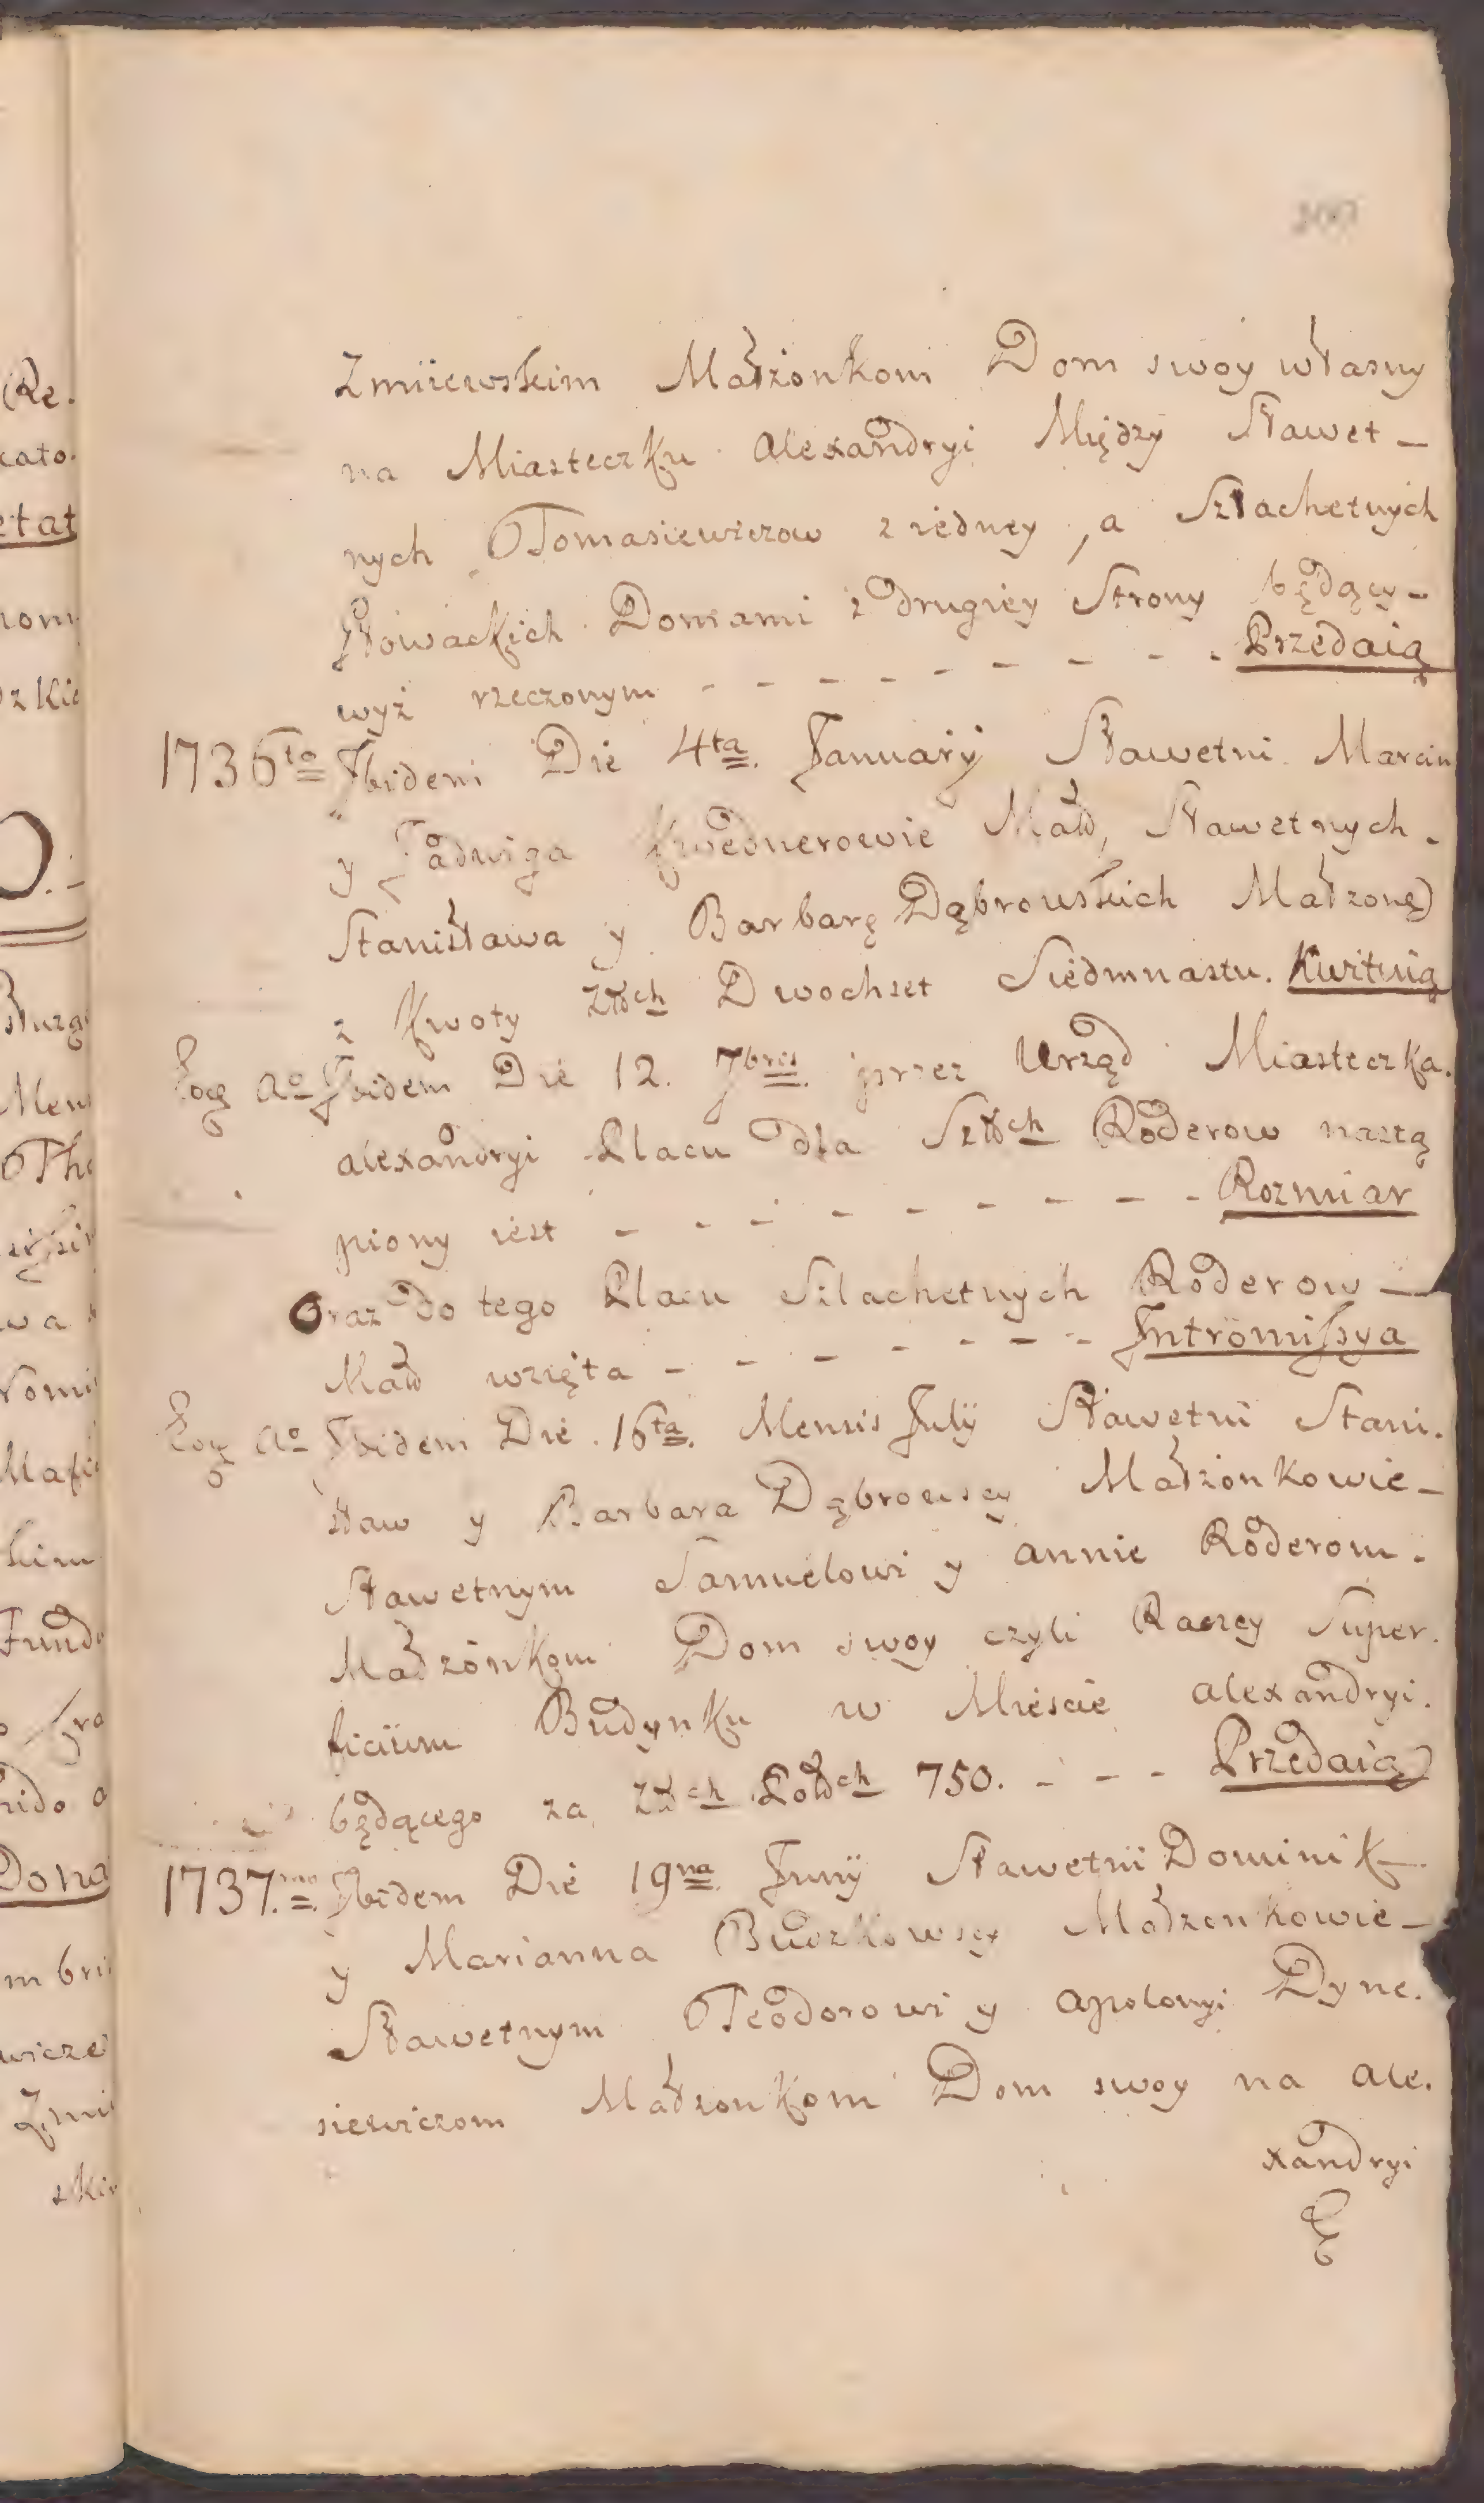 Zmiiewskim Małżonkom Dom swoy własny
na Miasteczku Alexandryi Między Sławet-
nych Tomasiewiczow z iedney, a Szlachetnych
Nowackich Domami z drugiey Strony będący-
wyż rzeczonym - - - - - - - - - Przedaią
1736to Ibidem Die 4ta Januarij Sławetni Marcin
y Jadwiga Małż, Sławetnych.
Stanisława y Barbarę Dąbrowskich Małzonę)
z kwoty Złłch Dwochset Siedmnastu. Kwituią
Eoq Ao Ibidem Die 12. 7bris przez Urząd Miasteczka.
Alexandryi Placu dla Szłłch Roderow nastą
piony iest - - - - - - - - Rozmiar
Oraz do tego Placu Szlachetnych Roderow -
Małż wzięta - - - - - - - Intromissya
Eoq Ao Ibidem Die 16ta Mensis July Sławetni Stani.
sław y Barbara Dąbrowscy Małżonkowie-
Sławetnym Samuelowi y Annie Roderom.
Małżonkom Dom swoy czyli Raczey Super.
ficium Budynku w Mieście Alexandryi.
będącego za Złłch Polłch 750. - - - Przedaią
1737.mo Ibidem Die 19na Junij Sławetni Dominik
y Marianna Buczkowscy Małzonkowie-
Sławetnym Teodorowi y Apolonyi Dyne.
siewiczom Małzonkom Dom swoy na Ale.
xandryi